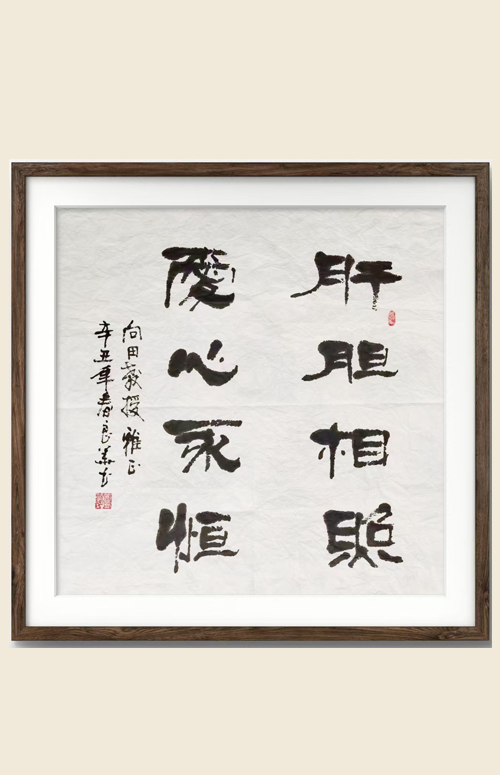 肝胆相照
愛心永恒
向田教授雅正
辛丑年春良书